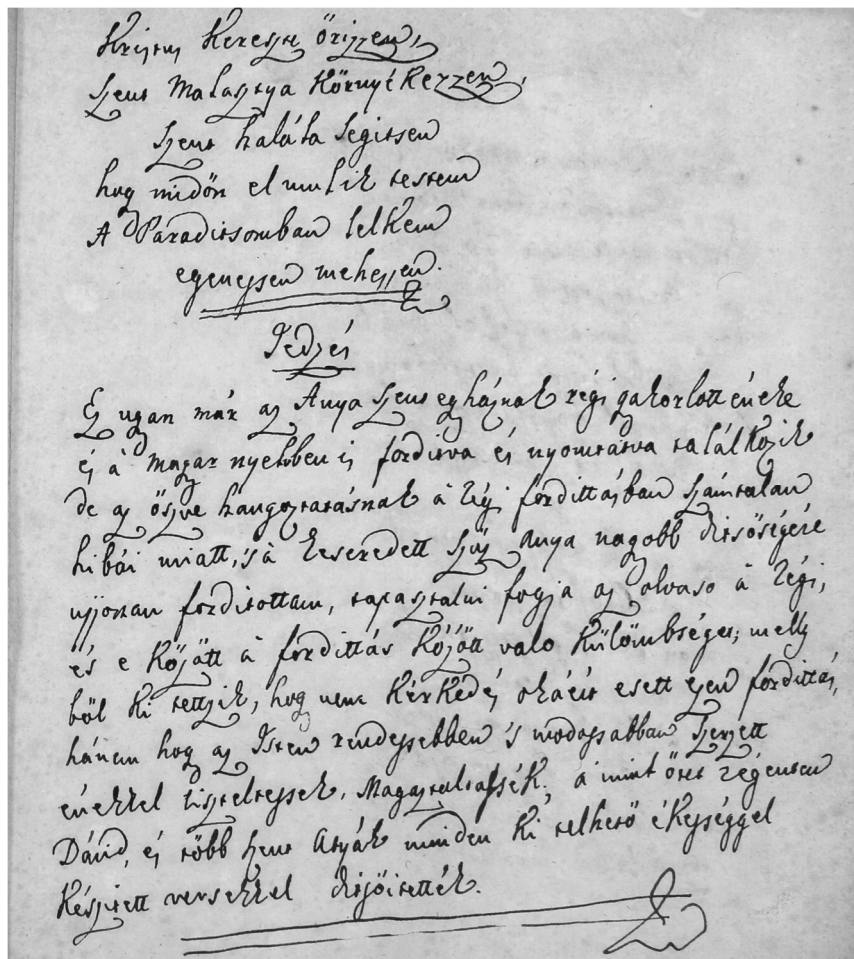 Kristus Kereszte őrizzen,
Szent Malasztya Környékezzen,
Szent halála segitsen
hogy midőn el mulik testem
A Paraditsomban lelkem
egenessen mehessen.
Jedzés
Ez ugyan már az Anya Szent egyháznak régi gyakorlott éneke
és á magyar nyelvben is forditva és nyomtatva találkozik
de az öszve hangoztatásnak á régi fordittásban számtalan
hibái miatt, 's à keseredett Szűz Anya nagyobb ditsőségére
ujjonan forditottam, tapasztalni fogja az olvaso à régi,
és e között à fordittás között valo külömbséget; melly
ből ki tettzik, hogy nem kérkedés okáért esett ezen fordittás,
hánem hogy az Isten rendessebben 's modossabban szerzett
énekkel tiszteltessék, Magasztaltassék; á mint őtet régenten
Dávid, és több szent Atyák minden ki telhető ékességgel
készitett versekkel ditsőitették.